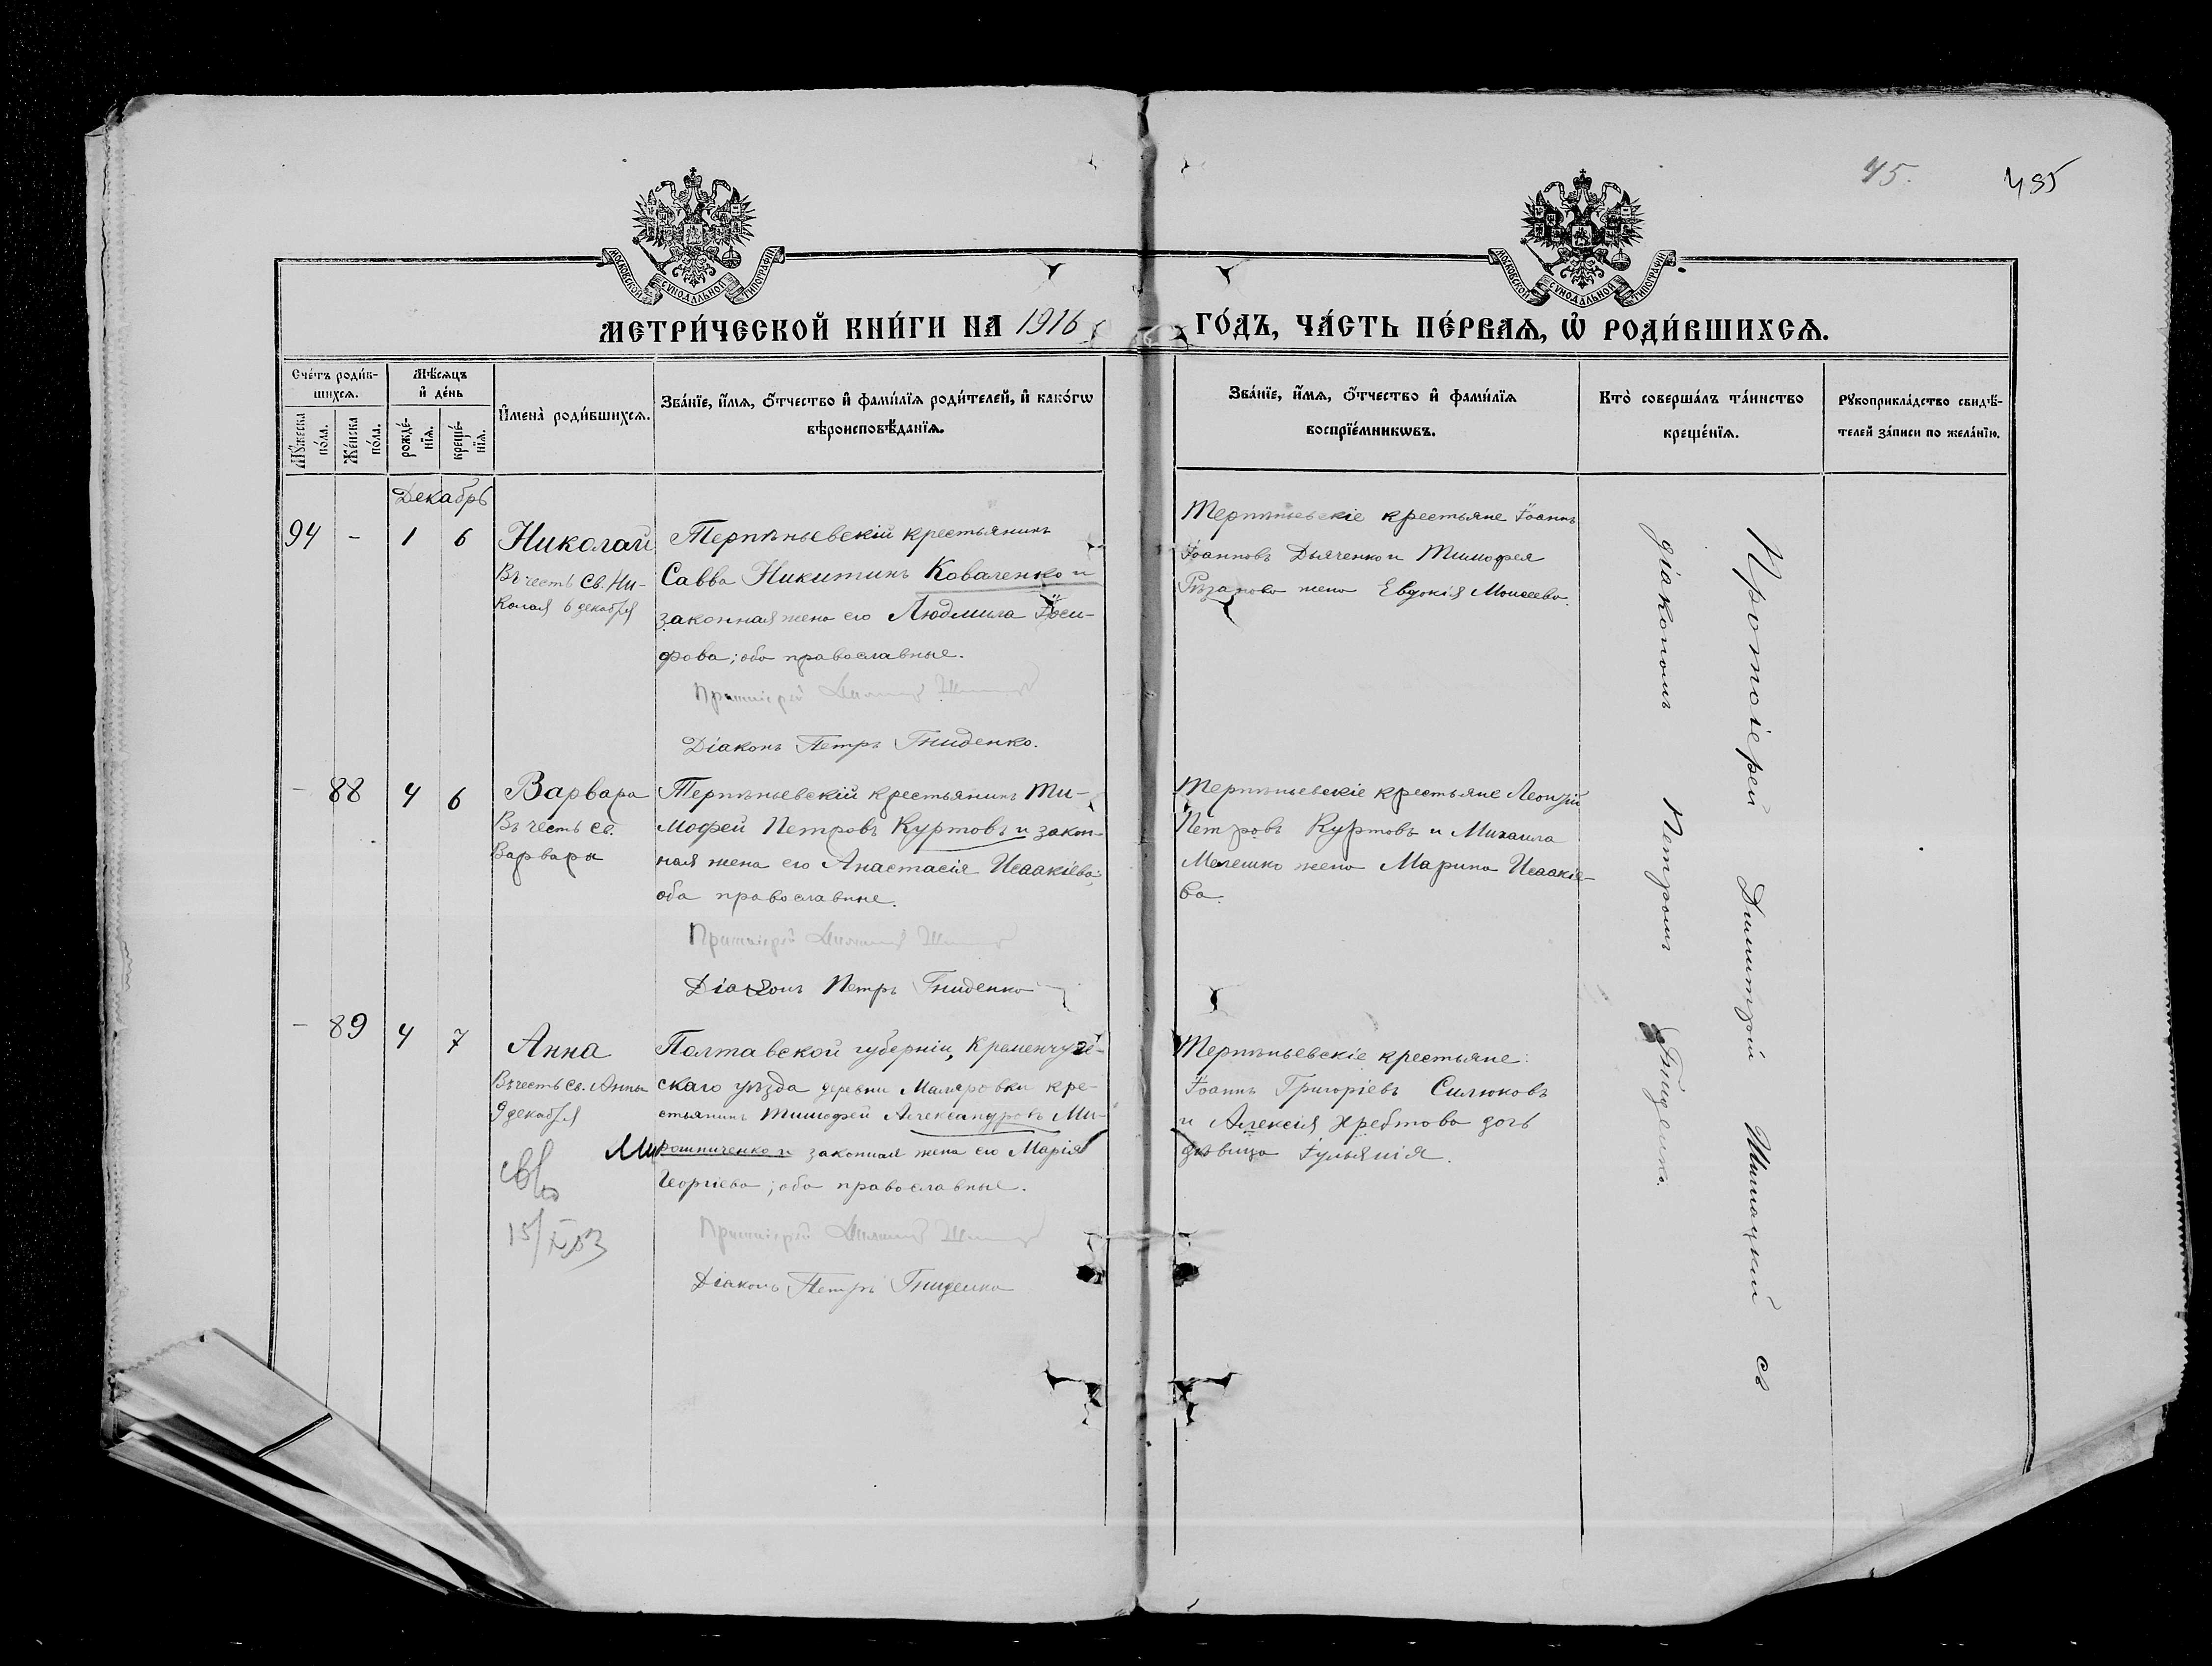 45.
495
МОСКОВСКОЙ СѴНОДАЛЬНОЙ ТИПОГРАФІИ
МОСКОВСКОЙ СѴНОДАЛЬНОЙ ТИПОГРАФІИ
МЕТРИ́ЧЕСКОЙ КНИ́ГИ НА 1916
ГО́ДЪ, ЧА́СТЬ ПЕ́РВАѦ, Ѡ҆ РОДИ́ВШИХСѦ.
Сче́тъ роди́в-
шихсѧ.
Мꙋ́жеска по́ла.
Же́нска по́ла.
Мѣ́сѧцъ
и҆ де́нь
рожде́-
нїѧ.
креще́-
нїѧ.
И҆мена̀ роди́вшихсѧ.
Зва́нїе, и҆́мѧ, ѻ҆́тчество и҆ фами́лїѧ роди́телей, и҆ како́гѡ
вѣроисповѣ́данїѧ.
Зва́нїе, и҆́мѧ, ѻ҆́тчество и҆ фами́лїѧ
воспрїе́мникѡвъ.
Кто̀ соверша́лъ та́инство
креще́нїѧ.
Рꙋкоприкла́дство свидѣ́-
телей за́писи по жела́нїю.
Декабрь
94 - 1 6
Николай
Въ честь Св. Ни-
колая 6 декабря
Терпѣньевскій крестьянинъ
Савва Никитинъ Коваленко и
законная жена его Людмила Іоси-
фова; оба православные.
Протоіерей
Діаконъ Петръ Гниденко.
Терпѣньевскіе крестьяне Іоаннъ
Іоанновъ Дьяченко и Тимофея
Рѣзанова жена Евдокія Моисеева.
- 88 4 6
Варвара
Въ честь Св.
Варвары
Терпѣньевскій крестьянинъ Ти-
мофей Петровъ Куртовъ и закон-
ная жена его Анастасія Исаакіева;
оба православные.
Протоіерей
Діаконъ Петръ Гниденко
Терпѣньевскіе крестьяне Леонтій
Петровъ Куртовъ и Михаила
Мелешко жена Марина Исаакіе-
ва.
- 89 4 7
Анна
Въ честь Св. Анны
9 декабря
15/
Полтавской губерніи, Кременчуг-
скаго уѣзда деревни кре-
стьянинъ Тимофей Александровъ Ми-
Ми
рошниченко и законная жена его Марія
Георгіева; оба православные.
Протоіерей
Діаконъ Петръ Гниденко
Терпѣньевскіе крестьяне:
Іоаннъ Григоріевъ Силюковъ
и Алексія Хребтова дочь
дѣвица Іуліанія.
Протоіерей Димитрій Шишацкій съ
діакономъ Петромъ Гниденко.